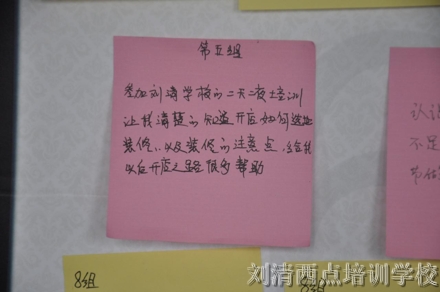 第五组
参加刘清学校的二天一夜培训
让我清楚的知道开店如何选址
装修，以及装修的注意点，给我
以后开店之路很多帮助
认识
不足
8组
8组
刘清西点培训学校